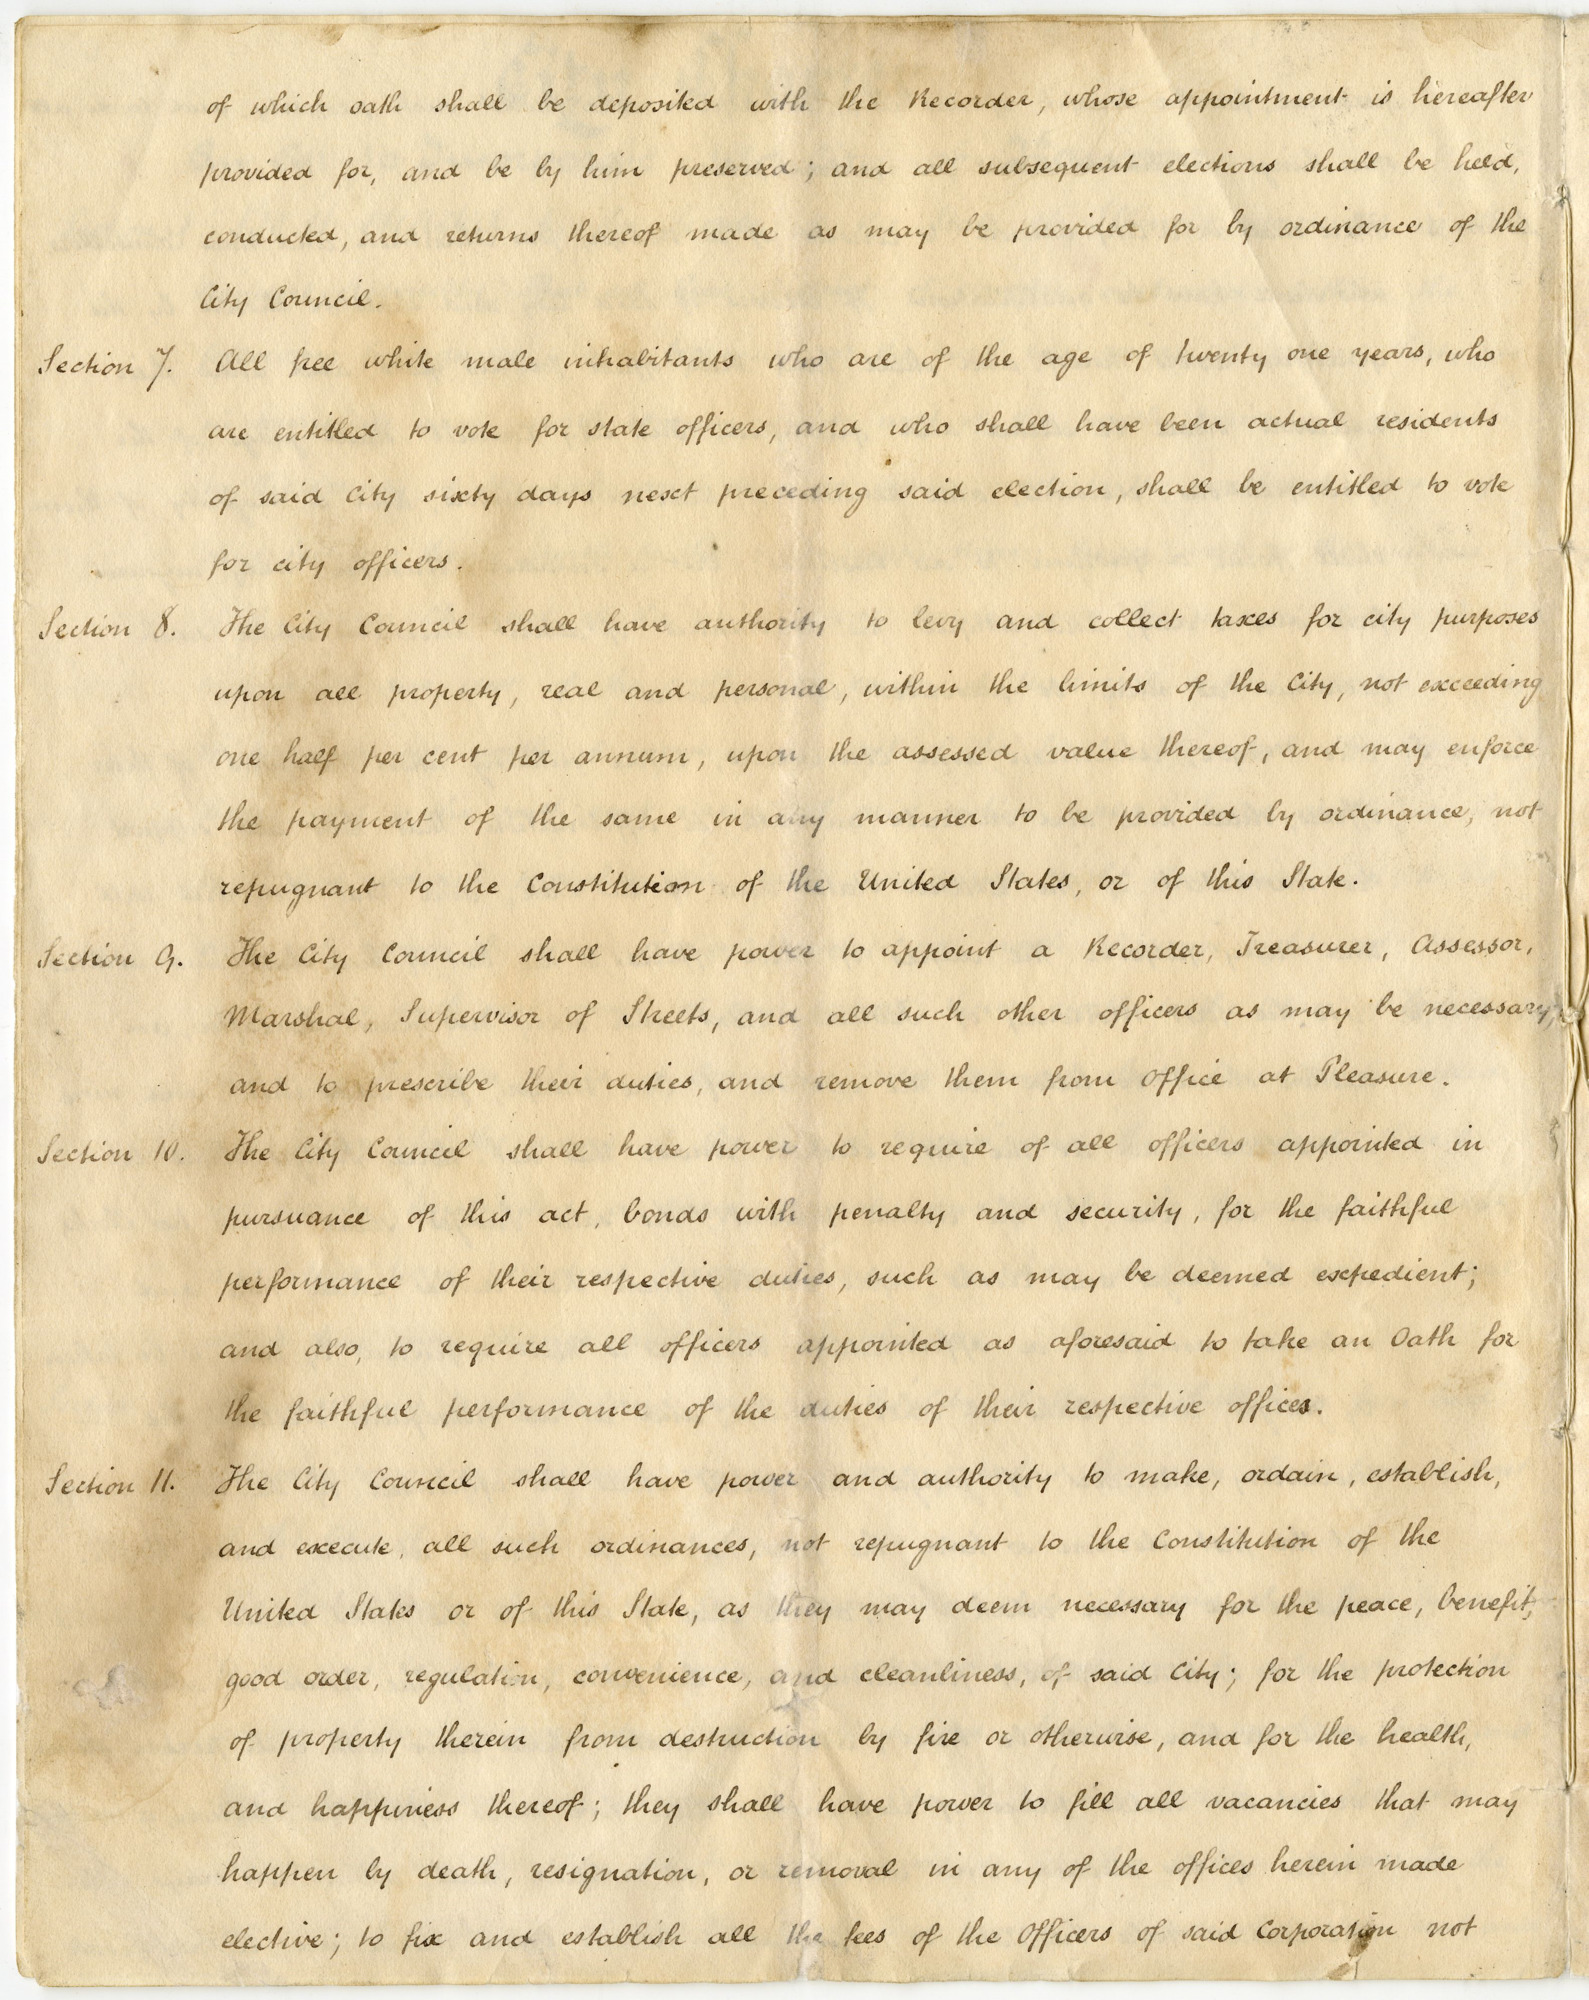 of which oath shall be deposited with the Recorder, whose appointment is hereafter
provided for, and be by him preserved; and all subsequent elections shall be held,
conducted, and returns thereof made as may be provided for by ordinance of the
City Council.
Section 7. All free white male inhabitants who are of the age of twenty one years, who
are entitled to vote for state officers, and who shall have been actual residents
of said City sixty days next preceding said election, shall be entitled to vote
for city officers.
Section 8. The City Council shall have authority to levy and collect taxes for city purposes
upon all property, real and personal, within the limits of the City, not exceeding
one half per cent per annum, upon the assessed value thereof, and may enforce
the payment of the same in any manner to be provided by ordinance, not
repugnant to the Constitution of the United States, or of this State.
Section 9. The City Council shall have power to appoint a Recorder, Treasurer, Assessor,
Marshal, Supervisor of Streets, and all such other officers as may be necessary,
and to prescribe their duties, and remove them from Office at Pleasure.
Section 10. The City Council shall have power to require of all officers appointed in
pursuance of this act, bonds with penalty and security, for the faithful
performance of their respective duties, such as may be deemed expedient;
and also, to require all officers appointed as aforesaid to take an Oath for
the faithful performance of the duties of their respective offices.
Section 11. The City Council shall have power and authority to make, ordain, establish,
and execute, all such ordinances, not repugnant to the Constitution of the
United States or of this State, as they may deem necessary for the peace, benefit,
good order, regulation, convenience, and cleanliness, of said City; for the protection
of property therein from destruction by fire or otherwise, and for the health,
and happiness thereof; they shall have power to fill all vacancies that may
happen by death, resignation, or removal in any of the offices herein made
elective; to fix and establish all the fees of the Officers of said Corporation not